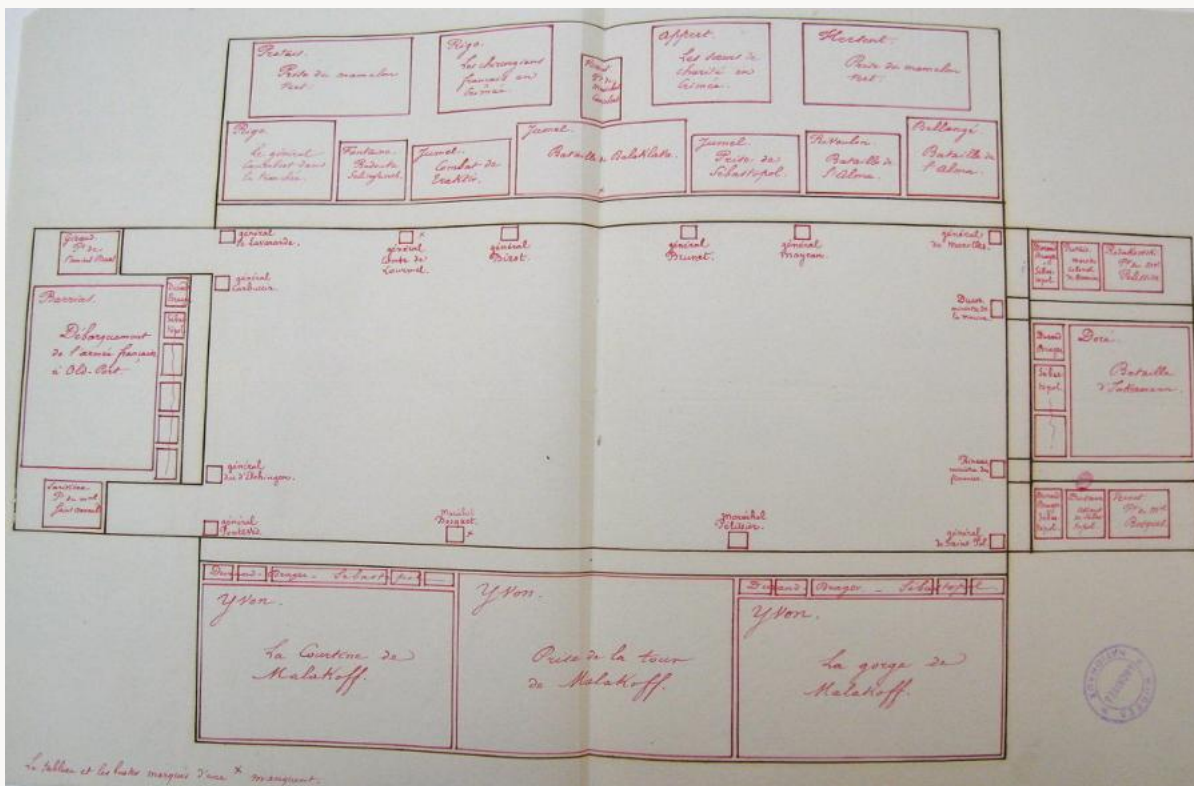 Protais.
Prise du mamelon
vert.
Rigo.
Les chirurgiens
français en
Crimée
appert.
Les sœurs de
charité en
Crimée.
Prise du mamelon
vert.
Rigo.
Le général
Canrobert dans
la tranchée.
Fontaine.
Redoute
Jumel.
Combat de
Jumel.
Bataille de Balaklata.
x
Jumel.
Prise de
Sébastopol.
Bataille de
l'Alma.
Bellangé
Bataille de
l'Alma.
Giraud.
Pt de
l'amiral Bruat
général
de Lavarande.
x
général
Comte de
Lourmel.
général
Bizot.
général
Brunet.
général
Mayran.
général
de Marolles.
Durand
Brager
Sébas
topol.
Protais
mort du
colonel
Pt du mal
Pélissier.
général
Carbuccia.
Barrias.
Débarquement
de l'armée française
à Old-Port.
Durand
Brager
Sébas
topol.
Ducos
ministre de
la marine.
Durand
Brager
Sébas
topol.
Doré.
Bataille
d'Inkermann.
général
duc d'Elchingen.
ministre des
finances.
Pt du mal
Saint Arnaud
général
Pontevès.
Maréchal
Bosquet.
x
Maréchal
Pélissier.
général
de Saint Pol
Durand
Brager
Sébas
topol.
Pt du mal
Bosquet.
Durand-Brager - Sébastopol
Durand Brager - Sébastopol
Yvon.
La Courtine de
Malakoff.
Yvon.
Prise de la tour
de Malakoff.
Yvon.
La gorge de
Malakoff.
Le tableau et les bustes marqués d'une x manquent.